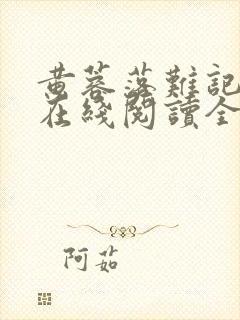 黄蓉落難記
在綫閱讀全
阿茹